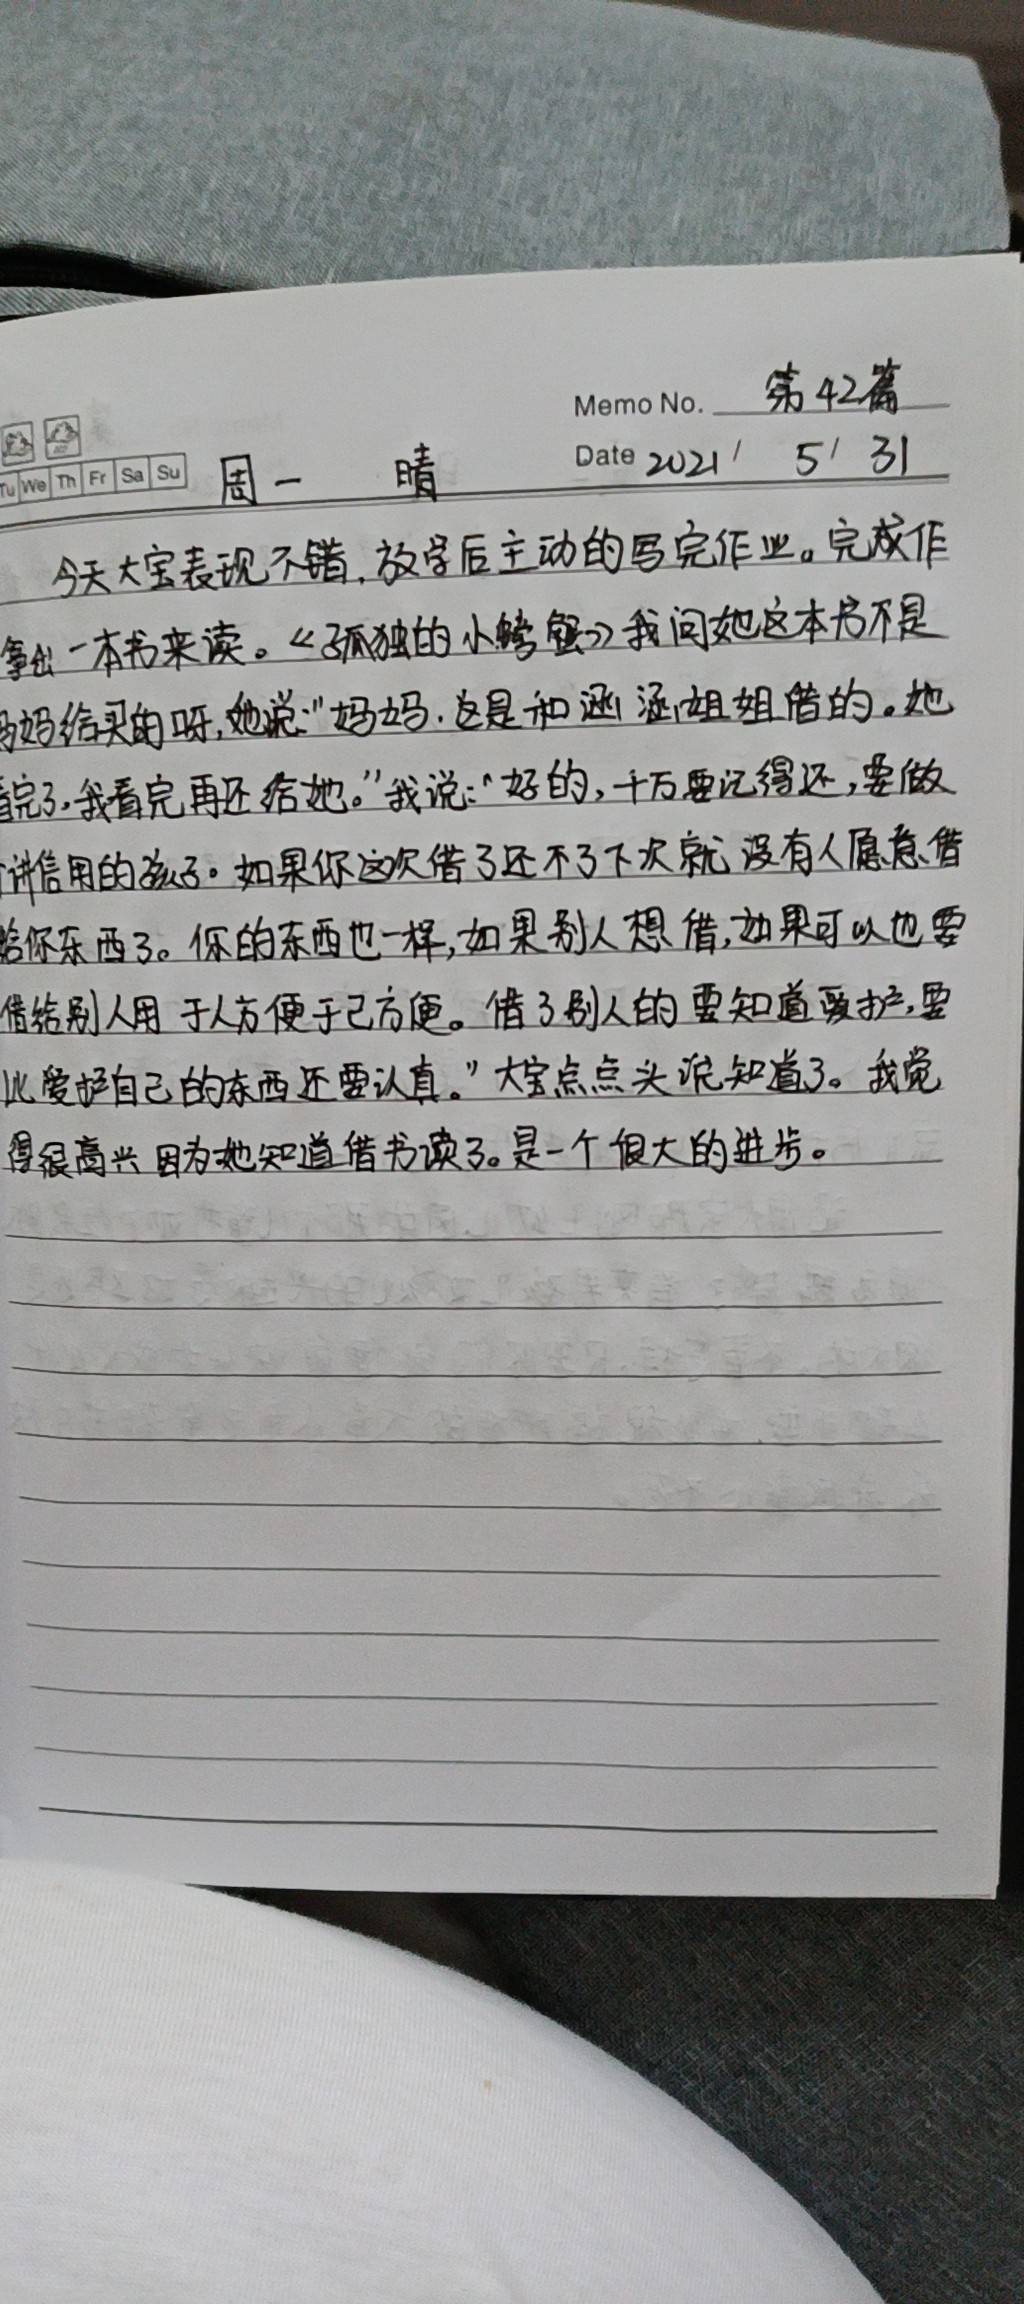 Memo No. 第42篇
Date 2021/ 5/ 31
Tu We Th Fr Sa Su 周一 晴
今天大宝表现不错,放学后主动的写完作业。完成作
拿出一本书来读。《孤独的小螃蟹》我问她这本书不是
妈妈给买的呀,她说:"妈妈.这是和涵涵姐姐借的。她
看完了.我看完再还给她。"我说:"好的,千万要记得还,要做
讲信用的孩子。如果你这次借了还不了下次就没有人愿意借
给你东西了。你的东西也一样,如果别人想借,如果可以也要
借给别人用 于人方便于己方便。借了别人的要知道爱护,要
比爱护自己的东西还要认真。"大宝点点头说知道了。我觉
得很高兴因为她知道借书读了。是一个很大的进步。